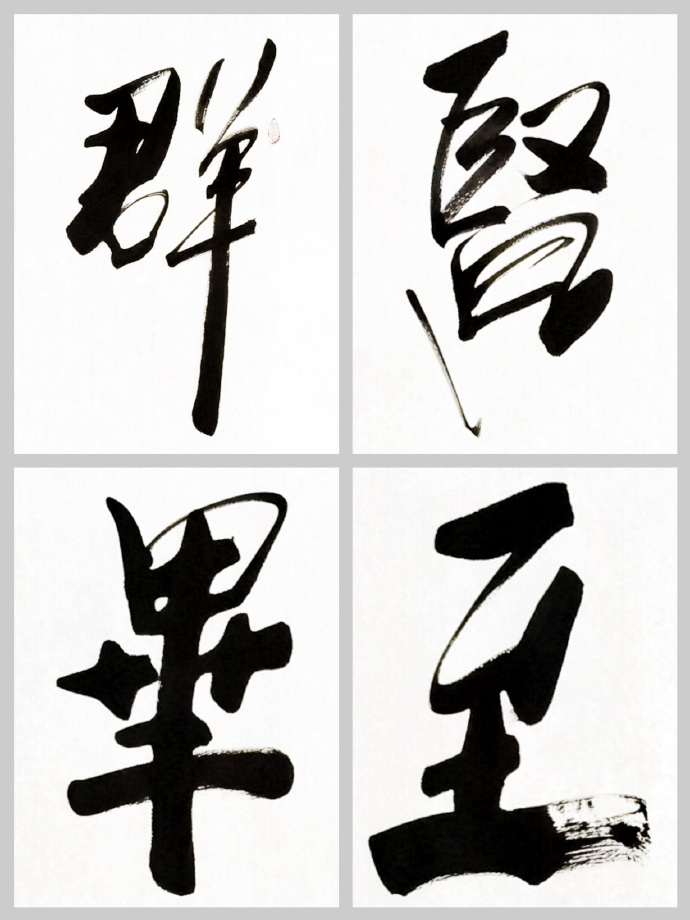 群賢
畢至